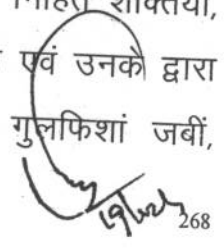 निहित शक्तियों,
एवं उनके द्वारा
गुलफिशां जबीं,
268